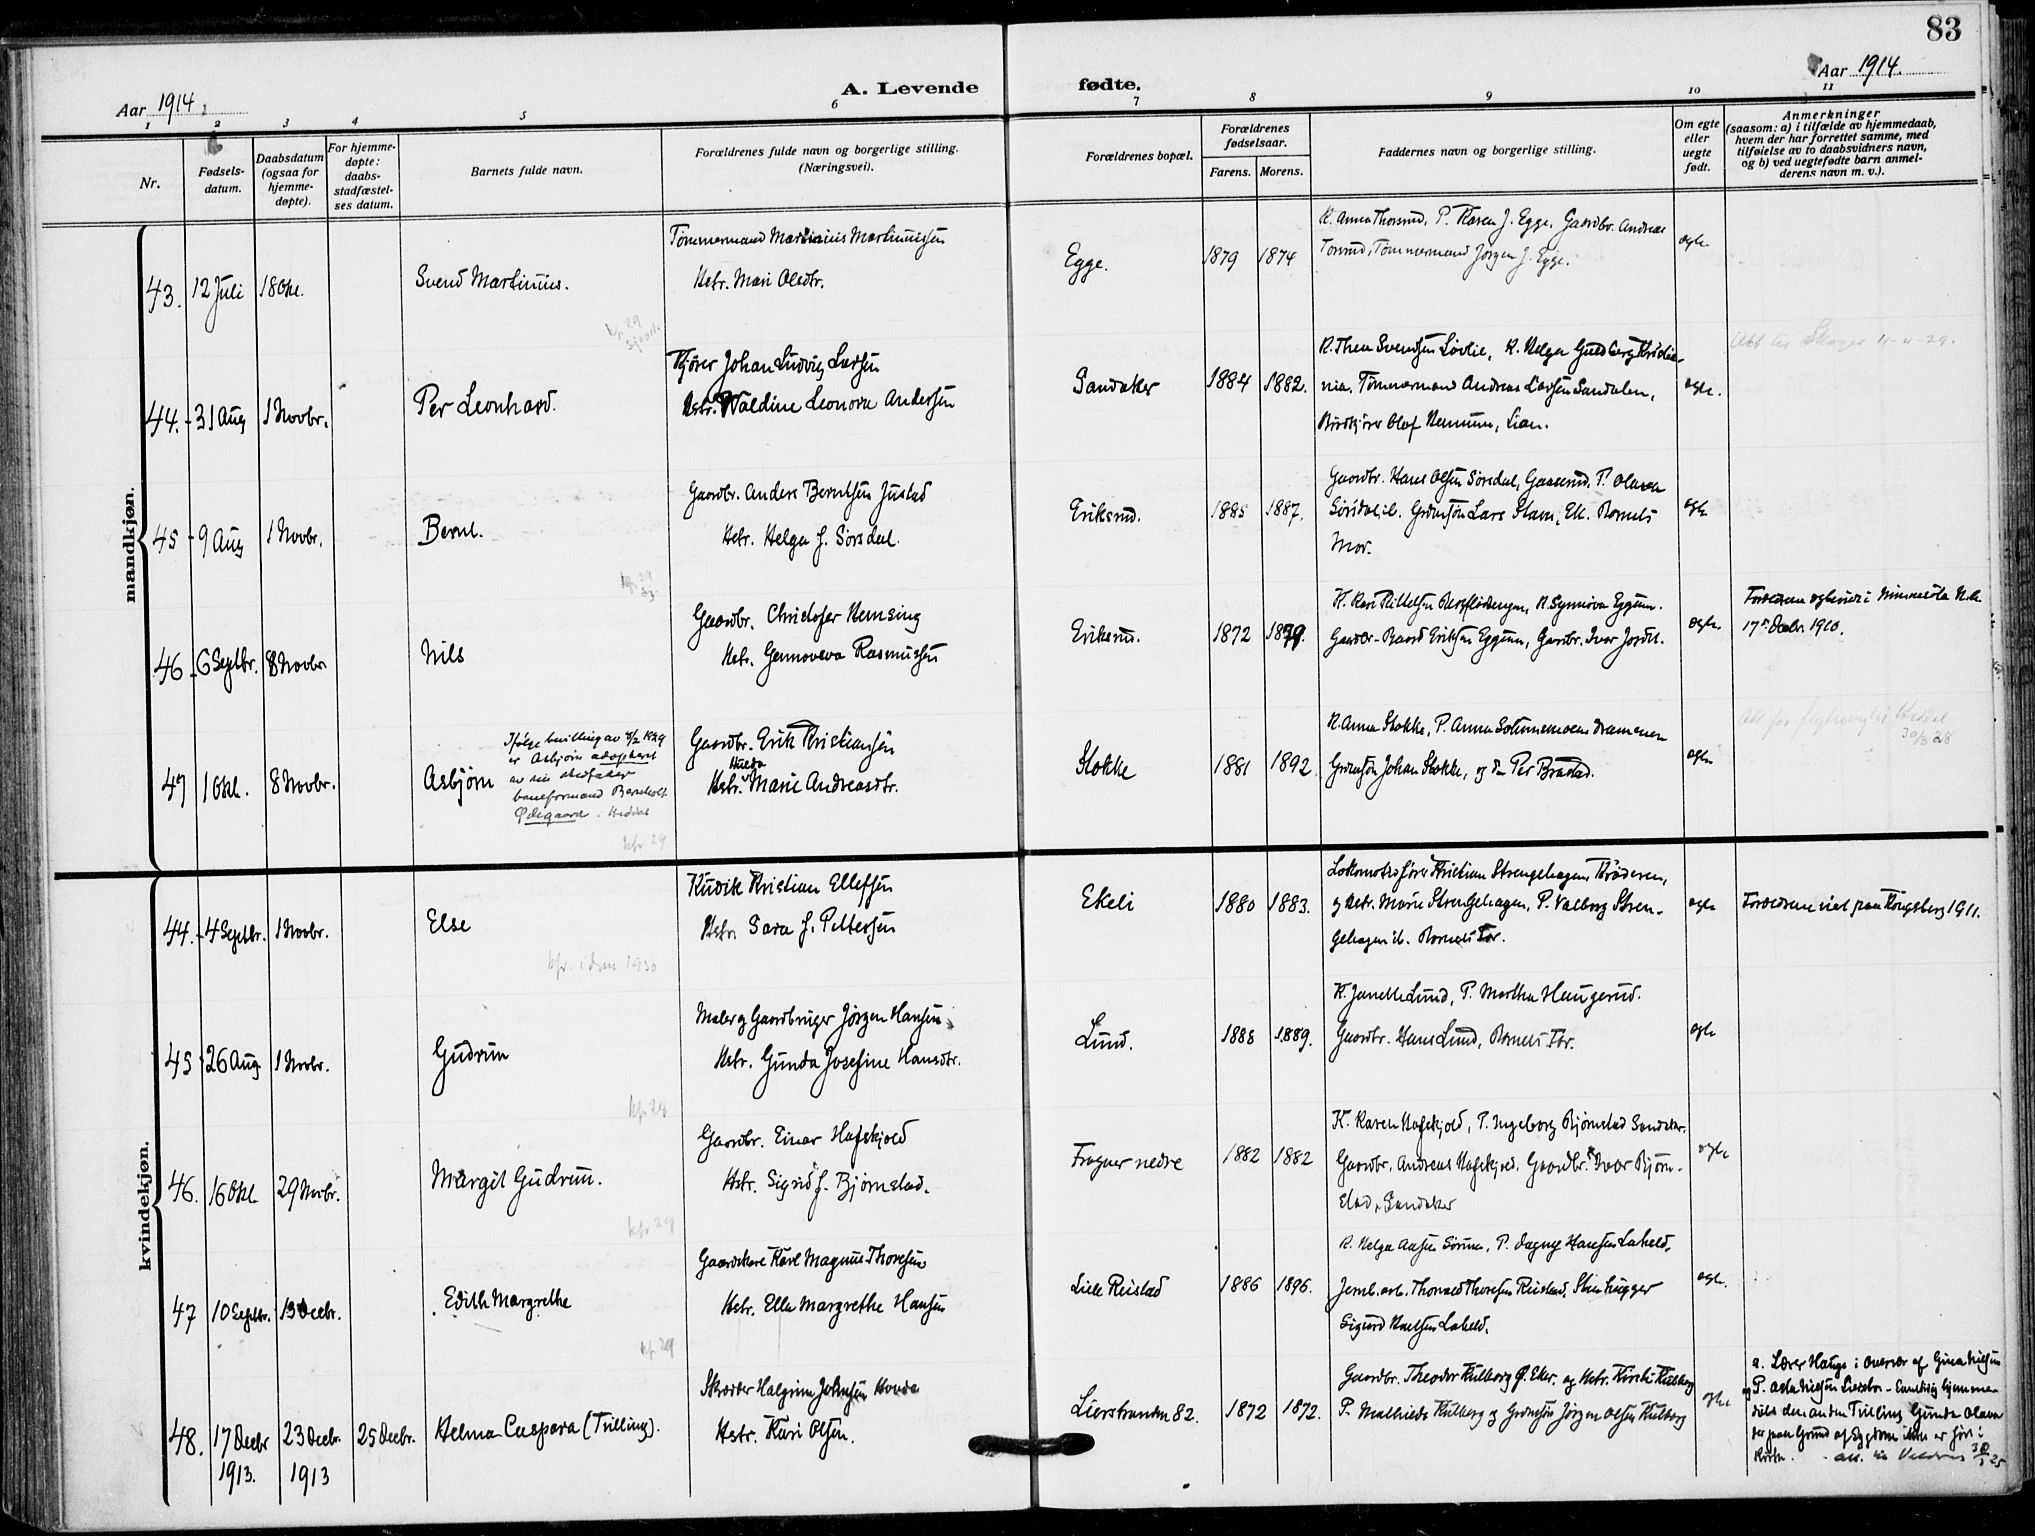 83
Aar 1914.
A. Levende
fødte.
Aar 1914.
1 2 3 4 5 6 7 8 9 10 11
Nr.
Fødsels-
datum.
Daabsdatum
(ogsaa for
hjemme-
døpte).
For hjemme-
døpte:
daabs-
stadfæstel-
ses datum.
Barnets fulde navn.
Forældrenes fulde navn og borgerlige stilling.
(Næringsvei).
Forældrenes bopæl.
Forældrenes
fødselsaar.
Farens. Morens.
Faddernes navn og borgerlige stilling.
Om egte
eller
uegte
født.
Anmerkninger
(saasom: a) i tilfælde av hjemmedaab,
hvem der har forrettet samme, med
tilføielse av to daabsvidners navn,
og b) ved uegtefødte barn anmel-
derens navn m. v.).
mandkjøn.
43. 12 Juli 18 Okt. Svend Martinius.
Tømmermand Martinius Martiniussen
Hstr. Mari Olsdtr.
Egge. 1879 1874
K. Anna Thorsrud, P. Karen J. Egge, Gaardbr. Andreas
Torsrud, Tømmermand Jørgen J. Egge.
egte.
44. 31 Aug 1 Novbr. Per Leonhard.
Kjører Johan Ludvig Larsen
Hstr. Valdine Leonora Andersen
Sandaker 1884 1882.
K. Thea Svendsen Løvlie, K. Helga Guldberg Kristia-
nia. Tømmermand Andreas Larsen Sandalen,
Olaf Hennum, Lian.
egte.
45 9 Aug 1 Novbr. Bernt.
Gaardbr. Anders Berntsen Justad
Hstr. Helga f. Sørsdal.
Eriksrud. 1885 1887.
Gaardbr. Hans Olsen Sørsdal, P. Olava
Sørsdal, ib. Grdmsøn Lars Stavn, Ek. Barnets
Mor.
egte
46 6 Septbr. 8 Novbr Nils
Gaardbr. Christofer Hemsing
Hstr. Gennoveva Rasmussen
Eriksrud. 1872 1879.
K. Kari Kittelsen, K. Synnøva Eggum.
Baard Eriksen Eggum, Gardbr. Iver
egte.
Forældrene egteviet i Minnesota N.A.
17de Decbr. 1910.
47 1 Okt. 8 Novbr. Asbjørn
Ifølge bevilling av
er Asbjørn adoptert
av sin stedfader
baneformand
Ødegaard i Heddal
kfr 29
Gaardbr. Erik Kristiansen
Hstr. Hulda Marie Andreasdtr.
Stokke 1881 1892
K. Anna Stokke, P. Anna Drammen
Grdmsøn Johan Stokke, og do Per Brastad.
egte
kvindekjøn.
44. 4 Septbr. 1 Novbr. Else
kfr. i Dram 1930
Kusk Kristian Ellefsen
Hstr Sara f. Pettersen
Ekeli 1880 1883.
Lokomotivfører Kristian Strengehagen, Krøderen,
og Hstr. Marie Strengehagen, P. Valborg Stren-
gehagen ib. Barnets Far.
egte
Forældrene viet paa Kongsberg 1911.
45 26 Aug 1 Novbr. Gudrun
Maler og Gaardbruger Jørgen Hansen
Hstr. Gunda Josefine Hansdtr.
Lund. 1888 1889.
K. Janette Lund, P. Martha Haugerud.
Gaardbr. Hans Lund, Barnets Far.
egte
46. 16 Okt 29 Novbr. Margit Gudrun.
kfr 29
Gaardbr. Einar Hafskjold
Hstr. Sigrid f. Bjørnstad.
Fragner nedre 1882 1882
K. Karen Hafskjold, P. Ingeborg Bjørnstad Sandaker.
Gaardbr. Andreas Hafskjold, Gaardbr. Ivar Bjørn-
stad, Sandaker
egte
47 10 Septbr. 13 Decbr. Edith Margrethe
kfr 29
Karl Magnus Thoresen
Hstr. Ella Margrethe Hansen
Lille Reistad 1886 1896.
K. Helga Aasen Sørum, P. Dagny Hansen Lahell,
Jernb. arb. Thorvald Thoresen Reistad, Stenhugger
Sigurd Lahell.
egte.
48. 17 Decbr 1913. 23 Decbr. 1913 25 Decbr. Helma Caspara (Tvilling).
Skrædder Halgrim Johnsen Hovda
Hstr. Kari Olsen.
Lierstranden 82. 1872 1872.
Gaardbr. Theodor Kulborg Ø. Eker og Hstr. Kirsti Kulborg
P. Mathilde Kulborg og Grdmsøn Jørgen Olsen Kulborg
egte
a. Lærer Hauge i Overvær af Gina Nielsen
og P. Asta Nielsen Lierstr. - Samtidig hjemme-
døbt den anden Tvilling Gunda Olava
der paa Grund af Sygdom ikke er ført i
Kirken.